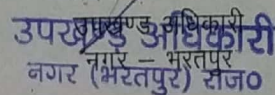 उपखण्ड अधिकारी
नगर – भरतपुर
उपखण्ड अधिकारी
नगर (भरतपुर) राज०